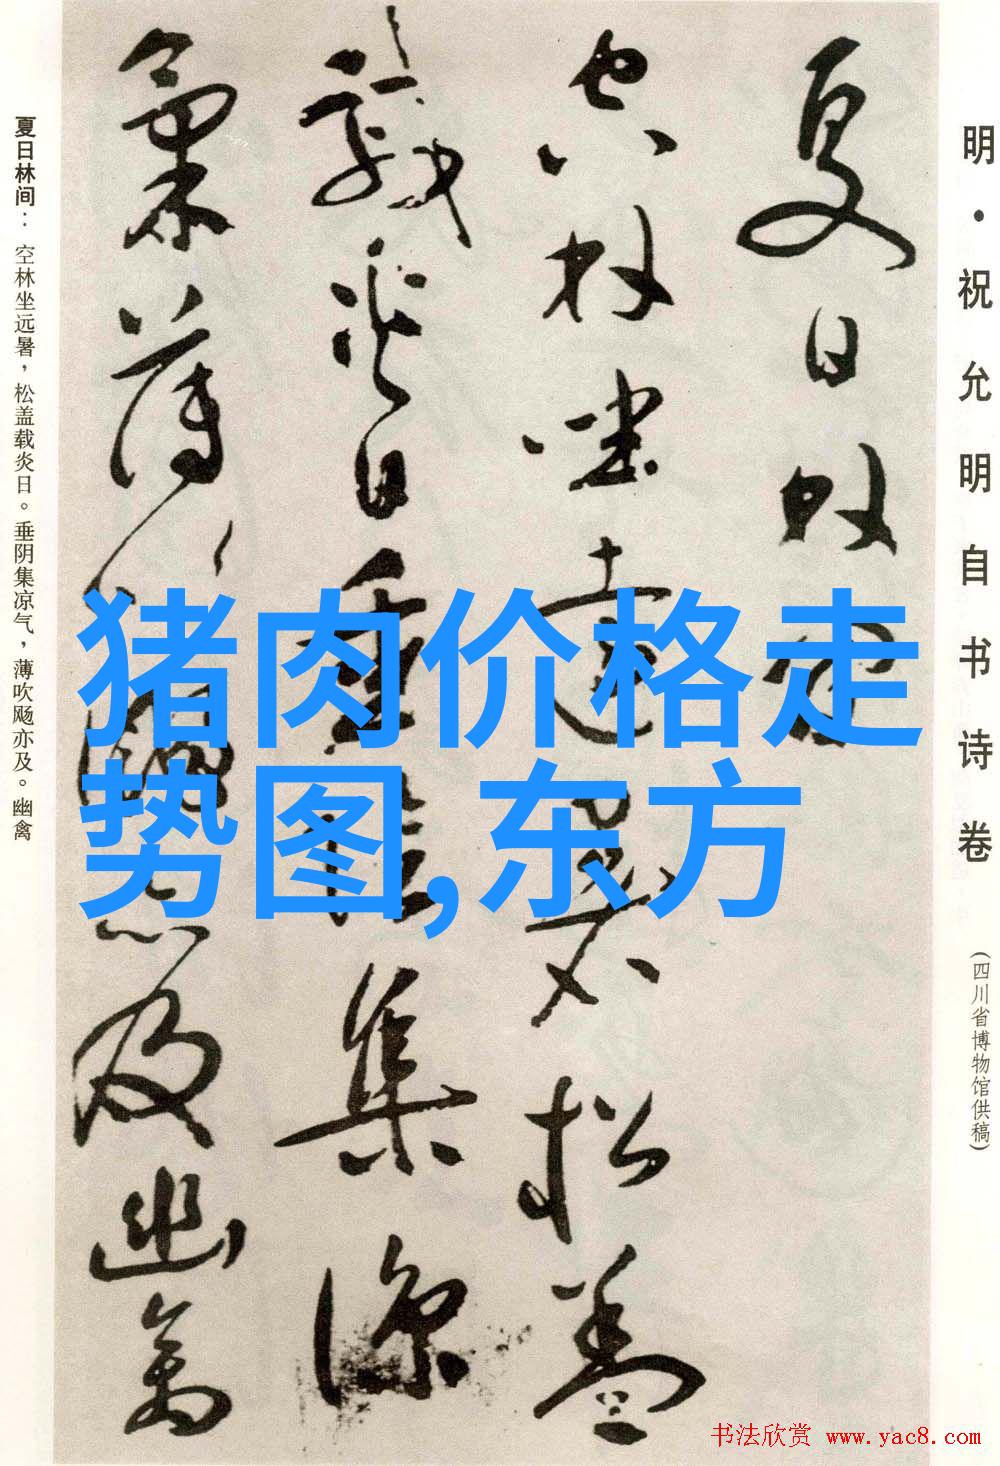 明·祝允明自书诗卷
(四川省博物馆供稿)
夏日林间
空林坐远暑松盖
载炎日垂阴集凉
气薄吹飏亦及幽禽
夏日林间：空林坐远暑，松盖载炎日。垂阴集凉气，薄吹飏亦及。幽禽
猪肉价格走
势图,东方
书法欣赏 www.yac8.com